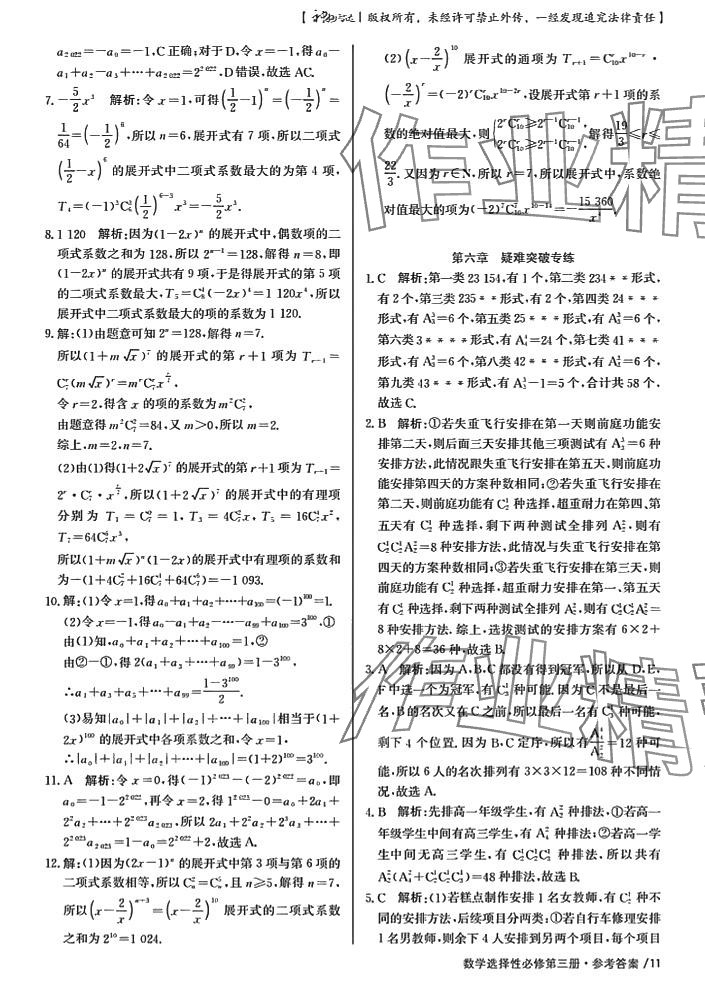 版权所有,未经许可禁止外传,一经发现追究法律责任】
a₂₀₂₂=-a₀=-1,C正确;对于D,令x=-1,得a₀-
a₁+a₂-a₃+…+a₂₀₂₂=2²⁰²²,D错误,故选AC.
7.-5/2 x³ 解析:令x=1,可得(1/2-1)ⁿ=(-1/2)ⁿ=
1/64=(-1/2)⁶,所以n=6,展开式有7项,所以二项式
(1/2-x)⁶的展开式中二项式系数最大的为第4项,
T₄=(-1)³C₆³(1/2)⁶⁻³x³=-5/2 x³.
8.1 120 解析:因为(1-2x)ⁿ的展开式中,偶数项的二
项式系数之和为128,所以2ⁿ⁻¹=128,解得n=8,即
(1-2x)ⁿ的展开式共有9项,于是得展开式的第5项
的二项式系数最大,T₅=C₈⁴(-2x)⁴=1 120x⁴,所以
展开式中二项式系数最大的项的系数为1 120.
9.解:(1)由题意可知2ⁿ=128,解得n=7.
所以(1+m√x)⁷的展开式的第r+1项为Tᵣ₊₁=
C₇ʳ(m√x)ʳ=mʳC₇ʳx^(r/2),
令r=2,得含x的项的系数为m²C₇²,
由题意得m²C₇²=84,又m>0,所以m=2.
综上,m=2,n=7.
(2)由(1)得(1+2√x)⁷的展开式的第r+1项为Tᵣ₊₁=
2ʳ·C₇ʳ·x^(r/2),所以(1+2√x)⁷的展开式中的有理项
分别为T₁=C₇⁰=1,T₃=4C₇²x,T₅=16C₇⁴x²,
T₇=64C₇⁶x³,
所以(1+m√x)ⁿ(1-2x)的展开式中有理项的系数和
为-(1+4C₇²+16C₇⁴+64C₇⁶)=-1 093.
10.解:(1)令x=1,得a₀+a₁+a₂+…+a₁₀₀=(-1)¹⁰⁰=1.
(2)令x=-1,得a₀-a₁+a₂-…-a₉₉+a₁₀₀=3¹⁰⁰,①
由(1)知,a₀+a₁+a₂+…+a₁₀₀=1,②
由②-①,得2(a₁+a₃+…+a₉₉)=1-3¹⁰⁰,
∴a₁+a₃+a₅+…+a₉₉=(1-3¹⁰⁰)/2.
(3)易知|a₀|+|a₁|+|a₂|+…+|a₁₀₀|相当于(1+
2x)¹⁰⁰的展开式中各项系数之和,令x=1,
∴|a₀|+|a₁|+|a₂|+…+|a₁₀₀|=(1+2)¹⁰⁰=3¹⁰⁰.
11.A 解析:令x=0,得(-1)²⁰²³-(-2)²⁰²²=a₀,即
a₀=-1-2²⁰²²,再令x=2,得1²⁰²³-0=a₀+2a₁+
2²a₂+…+2²⁰²³a₂₀₂₃,所以2a₁+2²a₂+2³a₃+…+
2²⁰²³a₂₀₂₃=1-a₀=2²⁰²²+2,故选A.
12.解:(1)因为(2x-1)ⁿ的展开式中第3项与第6项的
二项式系数相等,所以Cₙ²=Cₙ⁵,且n≥5,解得n=7,
所以(x-2/x)ⁿ⁺³=(x-2/x)¹⁰展开式的二项式系数
之和为2¹⁰=1 024.
(2)(x-2/x)¹⁰展开式的通项为Tᵣ₊₁=C₁₀ʳx¹⁰⁻ʳ·
(-2/x)ʳ=(-2)ʳC₁₀ʳx¹⁰⁻²ʳ,设展开式第r+1项的系
数的绝对值最大,则{2ʳC₁₀ʳ≥2ʳ⁻¹C₁₀ʳ⁻¹, 2ʳC₁₀ʳ≥2ʳ⁺¹C₁₀ʳ⁺¹,解得19/3≤r≤
22/3.又因为r∈N,所以r=7,所以展开式中,系数绝
对值最大的项为(-2)⁷C₁₀⁷x¹⁰⁻¹⁴=-15 360/x⁴.
第六章 疑难突破专练
1.C 解析:第一类23 154,有1个,第二类234**形式,
有2个,第三类235**形式,有2个,第四类24***
形式,有A₃³=6个,第五类25***形式,有A₃³=6个,
第六类3****形式,有A₄⁴=24个,第七类41***
形式,有A₃³=6个,第八类42***形式,有A₃³=6个,
第九类43***形式,有A₃³-1=5个,合计共58个,
故选C.
2.B 解析:①若失重飞行安排在第一天则前庭功能安
排第二天,则后面三天安排其他三项测试有A₃³=6种
安排方法,此情况跟失重飞行安排在第五天,则前庭功
能安排第四天的方案种数相同;②若失重飞行安排在
第二天,则前庭功能有C₂¹种选择,超重耐力在第四、第
五天有C₂¹种选择,剩下两种测试全排列A₂²,则有
C₂¹C₂¹A₂²=8种安排方法,此情况与失重飞行安排在第
四天的方案种数相同;③若失重飞行安排在第三天,则
前庭功能有C₂¹种选择,超重耐力安排在第一、第五天
有C₂¹种选择,剩下两种测试全排列A₂²,则有C₂¹C₂¹A₂²=
8种安排方法.综上,选拔测试的安排方案有6×2+
8×2+8=36种,故选B.
3.A 解析:因为A,B,C都没有得到冠军,所以从D,E,
F中选一个为冠军,有C₃¹种可能.因为C不是最后一
名,B的名次又在C之前,所以最后一名有C₃¹种可能,
剩下4个位置.因为B,C定序,所以有A₄⁴/A₂²=12种可
能,所以6人的名次排列有3×3×12=108种不同情
况,故选A.
4.B 解析:先排高一年级学生,有A₂²种排法,①若高一
年级学生中间有高三学生,有A₄⁴种排法;②若高一学
生中间无高三学生,有C₂¹C₂¹C₃¹ 种排法,所以共有
种排法,故选B.
5.C 解析:(1)若糕点制作安排1名女教师,有C₂¹种不
同的安排方法,后续项目分两类:①若自行车修理安排
1名男教师,则余下4人安排到另两个项目,每个项目
数学选择性必修第三册·参考答案/11
作业精
作业精